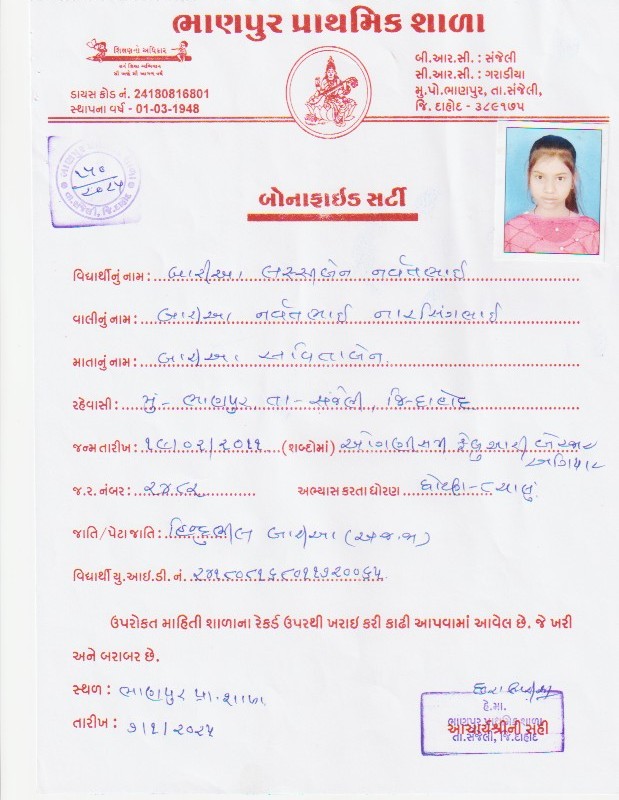 ભાણપુર પ્રાથમિક શાળા
શિક્ષાનો અધિકાર
સર્વ શિક્ષા અભિયાન
સૌ ભણે સૌ આગળ વધે
ડાયસ કોડ નં. 24180816801
સ્થાપના વર્ષ - 01-03-1948
બી.આર.સી. : સંજેલી
સી.આર.સી. : ગરાડીયા
મુ.પો.ભાણપુર, તા.સંજેલી,
જિ. દાહોદ - ૩૮૯૧૭૫
૨૫૦
૨૦૨૫
તા.સંજેલી, જિ.દાહોદ
બોનાફાઇડ સર્ટી
વિદ્યાર્થીનું નામ : બારીઆ લસ્સીબેન નર્વતભાઈ
વાલીનું નામ : બારીઆ નર્વતભાઈ નારસિંગભાઈ
માતાનું નામ : બારીઆ સવિતાબેન
રહેવાસી : મું- ભાણપુર તા- સંજેલી, જિ-દાહોદ
જન્મ તારીખ : ૧૯/૦૨/૨૦૧૧ (શબ્દોમાં) ઓગણીસમી ફેબ્રુઆરી બે હજાર
અગિયાર
જ.ર. નંબર : ૨૪૮૨ અભ્યાસ કરતા ધોરણ ધોરણ-૮ ચાલું
જાતિ/પેટા જાતિ : હિન્દુભીલ બારીઆ (અ.જ.જા)
વિદ્યાર્થી યુ.આઇ.ડી. નં. ૨૪૧૮૦૮૧૬૮૦૧૧૭૨૦૦૬૫
ઉપરોકત માહિતી શાળાના રેકર્ડ ઉપરથી ખરાઇ કરી કાઢી આપવામાં આવેલ છે. જે ખરી
અને બરાબર છે.
સ્થળ : ભાણપુર પ્રા. શાળા
તારીખ : ૭/૧/૨૦૨૫
હે.મા.
ભાણપુર પ્રાથમિક શાળા
આચાર્યશ્રીની સહી
તા.સંજેલી, જિ.દાહોદ